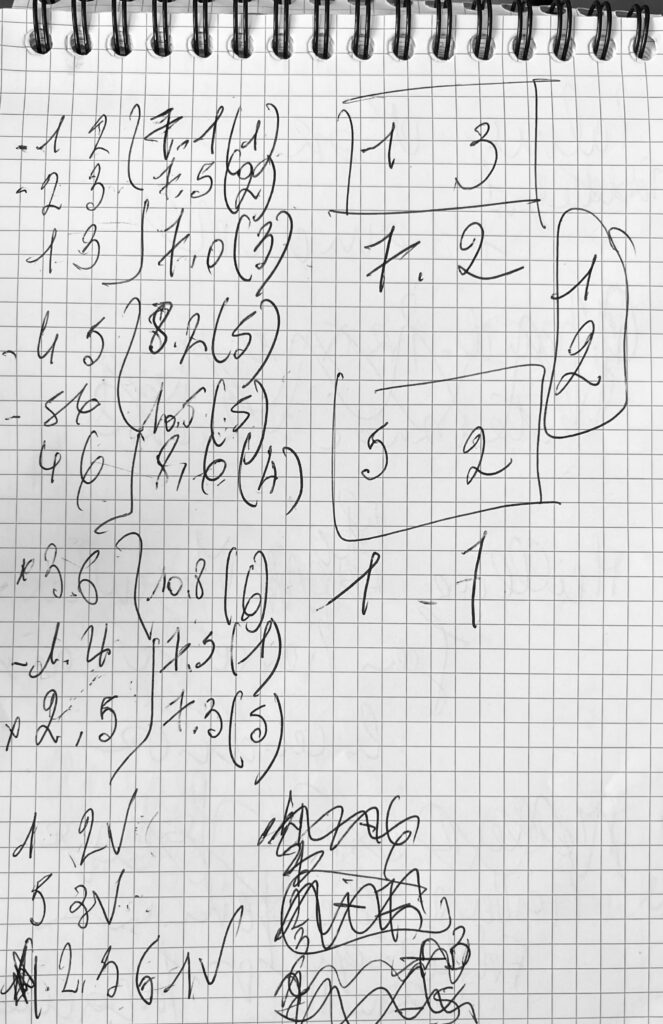 -1 2 7,1(1)
-2 3 7,5(2)
13 7,0(3)
-4 5 8.2(5)
-56 10,5(5)
4 6 8,6(4)
x3.6 10.8(6)
-1.4 7,5(1)
x2,5 7.3(5)
1 3
7. 2
1
2
5 2
1 - 1
1 2V
5 3V
.2,5 6 1V